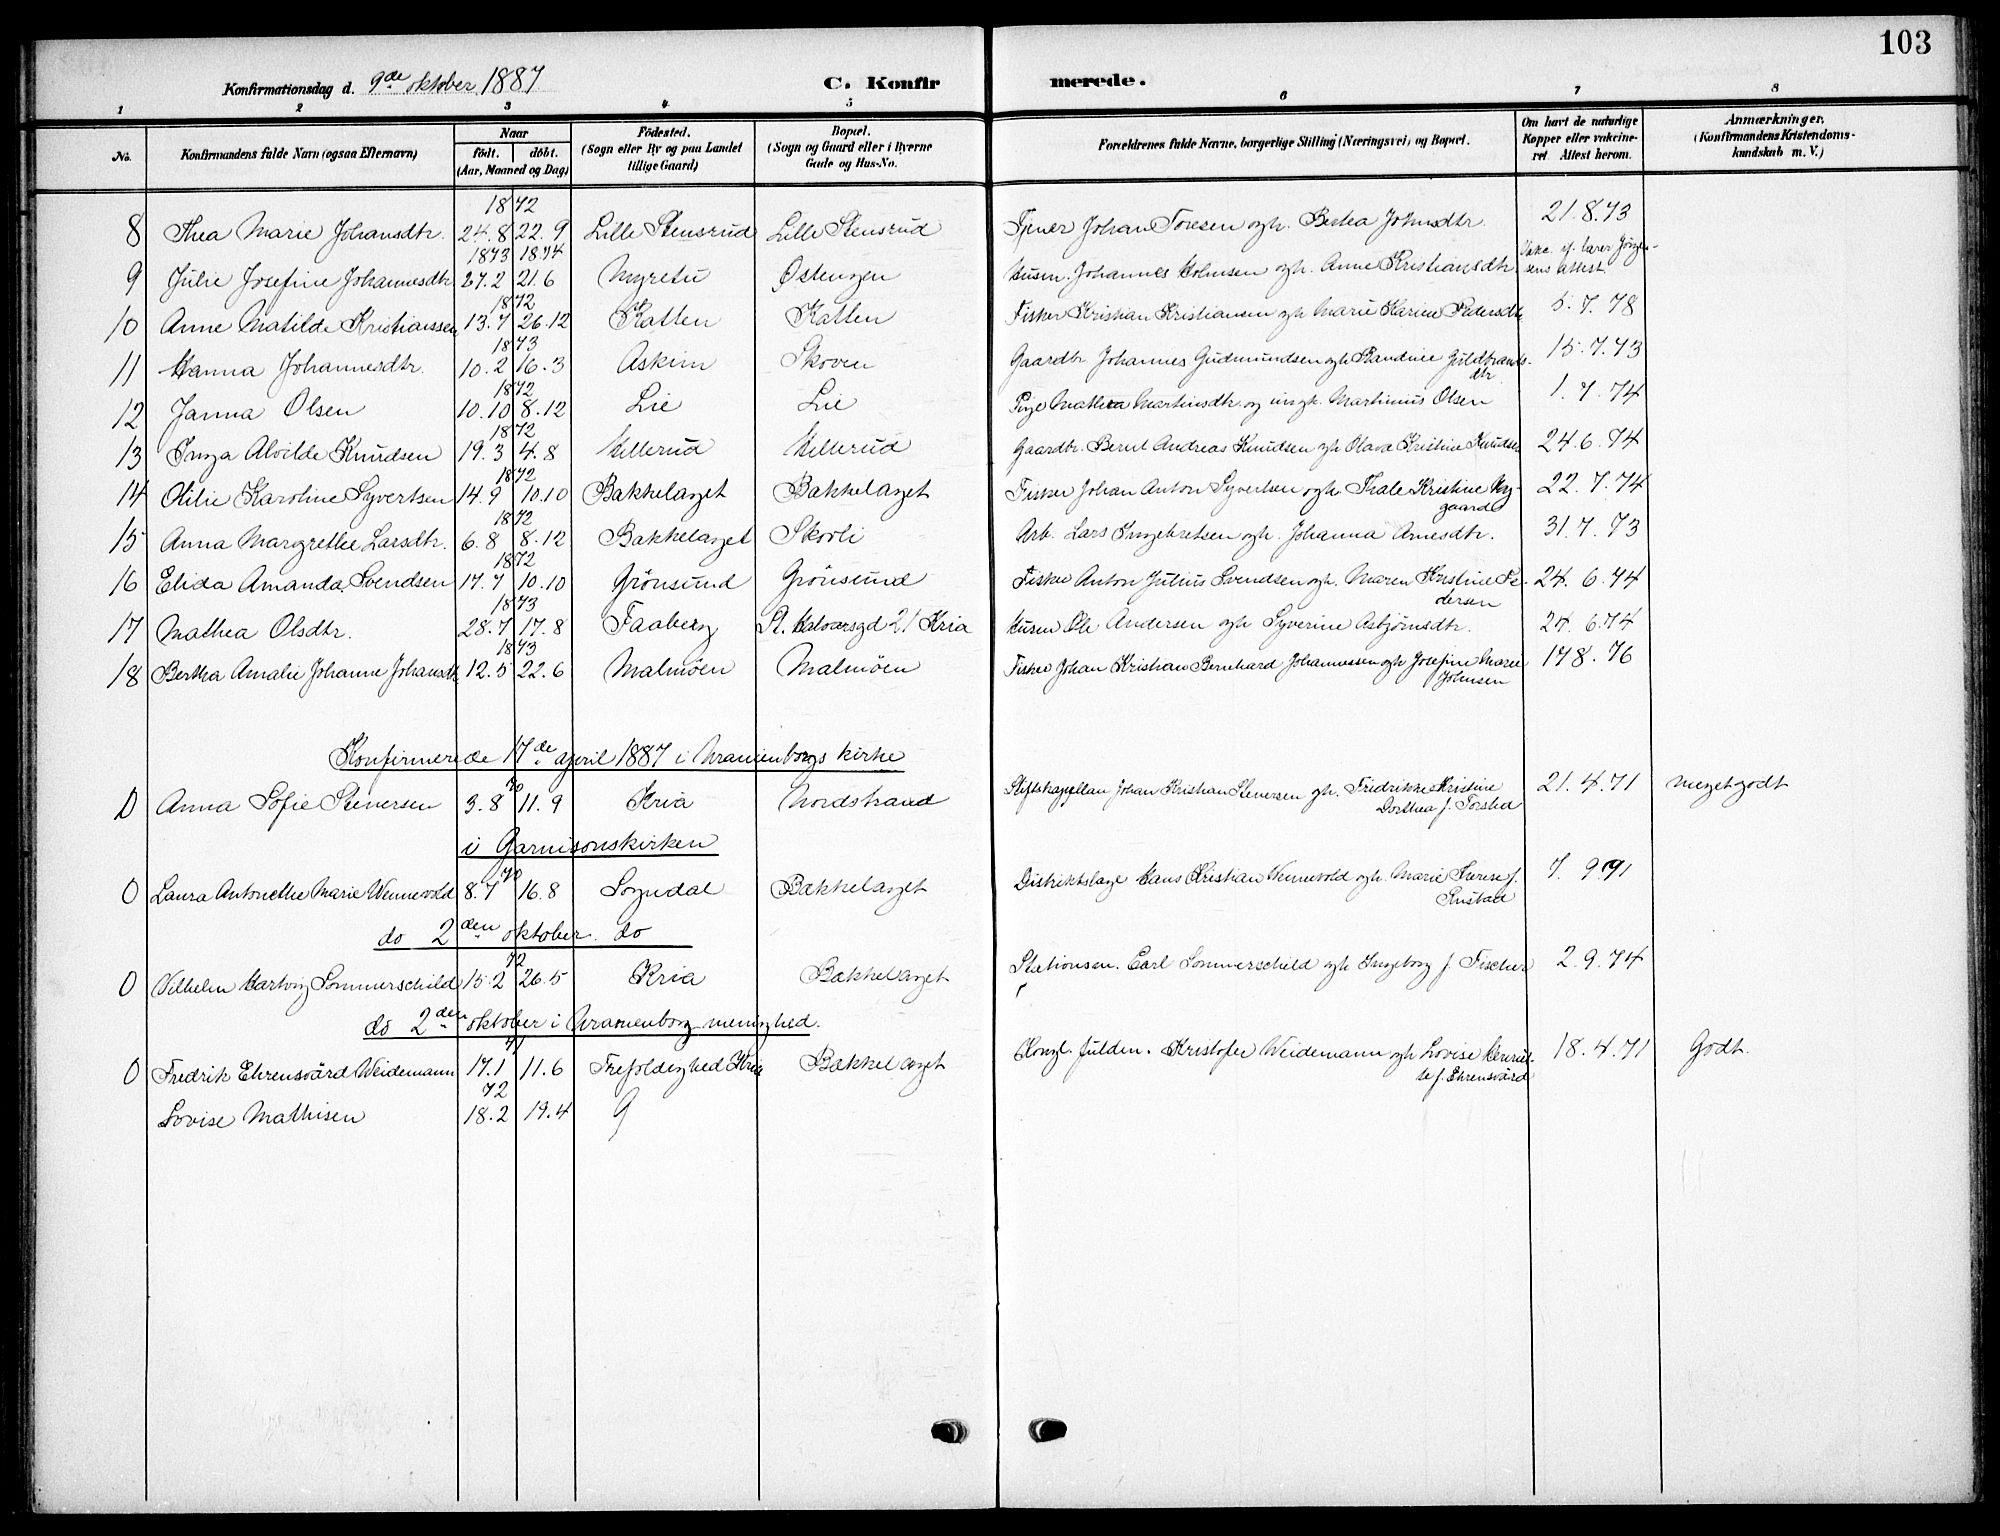 103
Konfirmationsdag d. 9de oktober 1887 C. Konfirmerede.
1 2 3 4 5 6 7 8
No. Konfirmandens fulde Navn (ogsaa Efternavn) Naar født. døbt. (Aar, Maaned og Dag) Fødested. (Sogn eller By og paa Landet tillige Gaard) Bopæl. (Sogn og Gaard eller i Byerne Gade og Hus-No. Forældrenes fulde Navne, borgerlige Stilling (Næringsvei) og Bopæl. Om havt de naturlige Kopper eller vakcineret. Attest herom. Anmærkninger, (Konfirmandens Kristendomskundskab m. V.)
1872
8 Thea Marie Johansdtr. 24.8 22.9 Lille Stensrud Lille Stensrud Tjener Johan Toresen oghr. Berthea Johnsdtr. 21.8.73
1873 1874
9 Julie Josefine Johannesdtr. 27.2 21.6 Myretu Østengen Husm. Johannes Holmsen ogh. Anne Kristiansdtr. attest
1872
10 Anne Matilde Kristianssen 13.7 26.12 Katten Katten Fisker Kristian Kristiansen ogh Marie Karine Pedersdtr. 5.7.78
1873
11 Hanna Johannesdtr. 10.2 16.3 Askim Skoven Gaardbr. Johannes Gudmundsen ogh Randine Guldbrands-
dtr. 15.7.73
1872
12 Janna Olsen 10.10 8.12 Lie Lie Pige Mathea Martinsdtr. og ungk. Martinius Olsen 1.7.74
1872
13 Inga Alvilde Knudsen 19.3 4.8 Hellerud Hellerud Gaardbr. Bernt Andreas Knudsen ogh Olava Kristine Knudsen 24.6.74
1872
14 Otilie Karoline Syvertsen 14.9 10.10 Bakkelaget Bakkelaget Fisker Johan Anton Syvertsen ogh. Thale Kristine Ny-
gaard 22.7.74
1872
15 Anna Margrethe Larsdtr. 6.8 8.12 Bakkelaget Skovli Arb. Lars Ingebretsen ogh. Johanna Arnesdtr. 31.7.73
1872
16 Elida Amanda Svendsen 17.7 10.10 Grönsund Grönsund Fisker Anton Julius Svendsen ogh. Maren Kristine Pe-
dersen 24.6.74
1873
17 Mathea Olsdtr. 28.7 17.8 Faaberg St. Halvorsgd 21 Kria Husm Ole Andersen ogh Syverine Asbjörnsdtr. 24.6.74
1873
18 Bertha Amalie Johanne Johansdtr 12.5 22.6 Malmöen Malmöen Fisker Johan Kristian Bernhard Johannessen ogh Josefine Marie
Johnsen 17.8.76
Konfirmerede 17de april 1887 i Uranienborgs kirke
70
0 Anna Sofie Stenersen 3.8 11.9 Kria Nordstrand Stiftskapellan Johan Kristian Stenersen gh. Fredrikke Kristine
Dorthea f. 21.4.71 meget godt
i Garnisonskirken
70
0 Laura Antonethe Marie Wennevold 8.7 16.8 Sogndal Bakkelaget Distriktslæge Hans Kristian Wennevold ogh. Marie Terese f. 7.9.91
do 2den oktober do
72
0 Vilhelm Hartvig Sommerschild 15.2 26.5 Kria Bakkelaget Stationsm. Carl Sommerschild ogh Ingeborg f. Fischer 2.9.74
do 2den oktober i Uranienborg menighed.
71
0 Fredrik Ehrensvärd Weidemann 17.1 11.6 Trefoldighed Kria Bakkelaget Kristofer Weidemann ogh Lovise Henriet-
te f. Ehrensvärd 18.4.71 Godt.
72
Lovise Mathisen 18.2 19.4